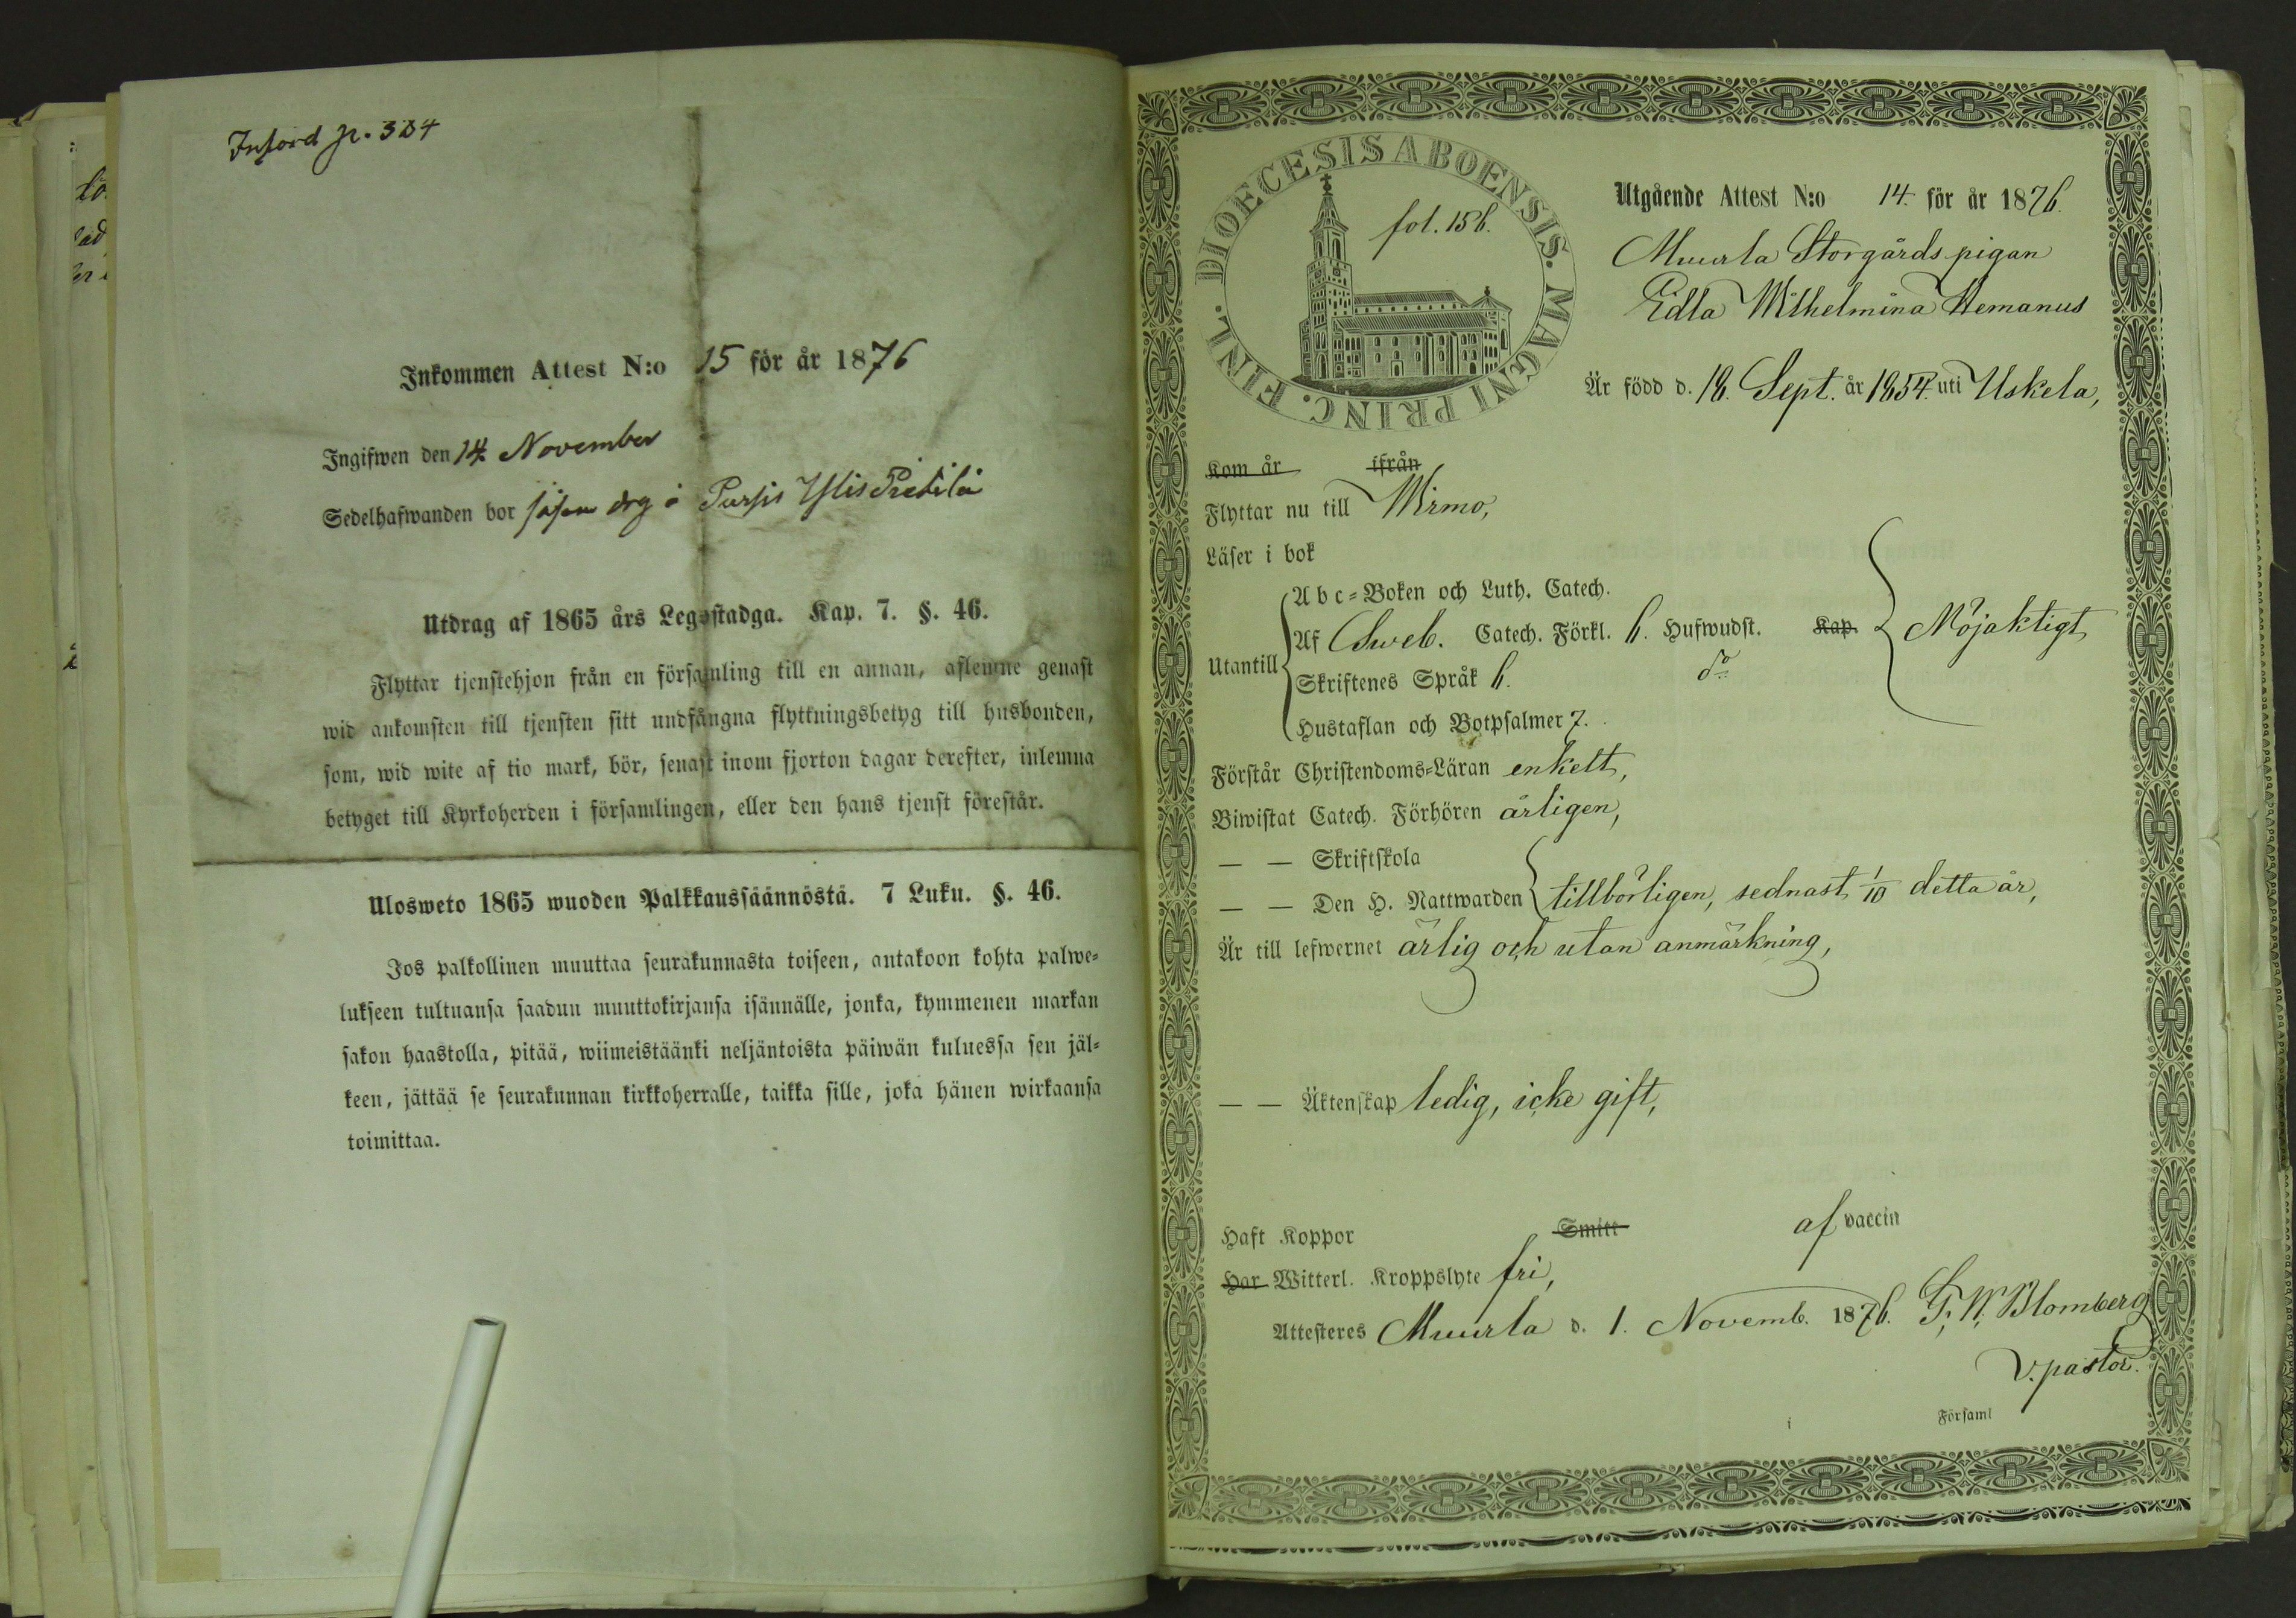 Införd p. 304
Inkommen Attest N:o 15 för år 1876
Ingifwen den 14 November
Sedelhafwanden bor
Utdrag af 1865 års Legostadga. Kap. 7. §. 46.
Flyttar tjenstehjon från en församling till en annan, aflemne genast
wid ankomsten till tjensten sitt undfångna flyttningsbetyg till husbonden,
som, wid wite af tio mark, bör, senast inom fjorton dagar derefter, inlemna
betyget till Kyrkoherden i församlingen, eller den hans tjenst förestår.
Ulosweto 1865 wuoden Palkkaussäännöstä. 7 Luku. §. 46.
Jos palkollinen muuttaa seurakunnasta toiseen, antakoon kohta palwe=
lukseen tultuansa saadun muuttokirjansa isännälle, jonka, kymmenen markan
sakon haastolla, pitää, wiimeistäänki neljäntoista päiwän kuluessa sen jäl=
keen, jättää se seurakunnan kirkkoherralle, taikka sille, joka hänen wirkaansa
toimittaa.
DIOECESIS ABOENSIS. MAGNI PRINC. FINL.
fol. 156.
Utgående Attest N:o 14. för år 1876.
Muurla Storgårds pigan
Edla Wilhelmina Hemanus
Är född d. 18. Sept. år 1854. uti Uskela,
Kom år ifrån
Flyttar nu till Wirmo,
Läser i bok
Utantill
Abc=Boken och Luth. Catech.
Af Sweb. Catech. Förkl. 6. Hufwudst. Kap. Nöjaktigt
Skriftenes Språk 6. do
Hustaflan och Botpsalmer 7.
Förstår Christendoms=Läran enkelt,
Biwistat Catech. Förhören årligen,
— — Skriftskola
— — Den H. Nattwarden tillbörligen, sednast 1/10 detta år,
Är till lefwernet ärlig och utan anmärkning,
— — Äktenskap ledig, icke gift,
Haft Koppor Smitt af vaccin
Har Witterl. Kroppslyte fri,
Attesteres Muurla d. 1. Novemb. 1876. F. W. Blomberg
V. pastor.
i Församl